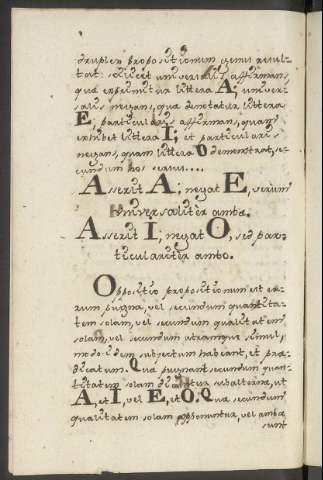 druplex propositionum genus resul-
tat: scilicet universalis affirmans,
quæ exprimitur littera A; univer-
salis negans, qua denotatur littera
E, particularis affirmans, quam
exhibet littera I; et particularis
negans, quam littera O demonstrat, se-
cundum hos versus....
Asserit A; negat E, verum
universaliter ambo.
Asserit I; negat O, sed par-
ticulariter ambo.
Oppositio propositionum est ea-
rum pugna, vel secundum quantita-
tem solam, vel secundum qualitatem
solam, vel secundum utramque simul;
modo idem subjectum habeant, et præ-
dicatum. Quæ pugnant secundum quan-
titatem solam dicuntur subalternæ, ut
A, et I, vel E, et O. Quæ secundum
qualitatem solam opponuntur, vel ambæ
sunt